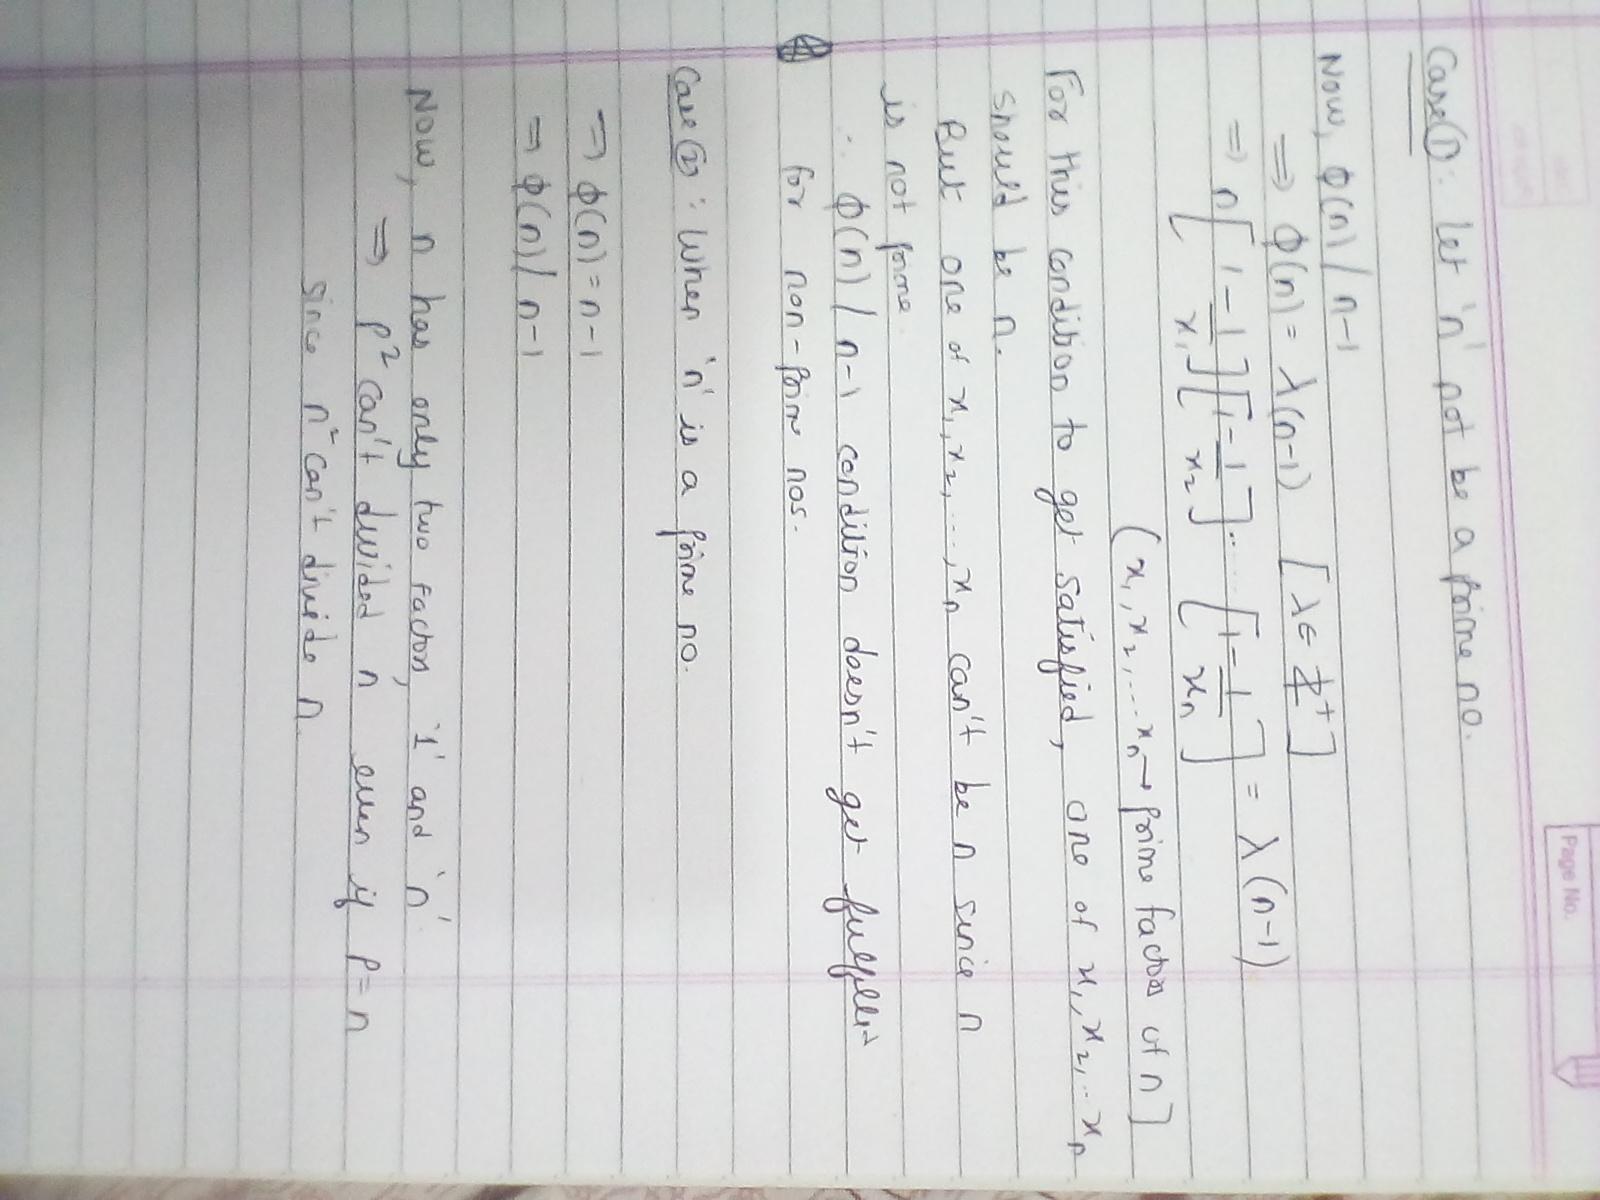 Page No.
Case ①: let 'n' not be a prime no.
Now, φ(n) / n-1
⇒ φ(n) = λ(n-1) [λ ∈ Z⁺]
⇒ n[1 - 1/x₁][1 - 1/x₂]..... [1 - 1/xₙ] = λ(n-1)
(x₁, x₂, ... xₙ → prime factors of n]
For this condition to get satisfied, one of x₁, x₂, .. xₙ
should be n.
But one of x₁, x₂, ..., xₙ can't be n since n
is not prime.
∴ φ(n) / n-1 condition doesn't get fulfilled
for non-prime nos.
Case ②: When 'n' is a prime no.
⇒ φ(n) = n-1
⇒ φ(n) / n-1
Now, n has only two factors, '1' and 'n'.
⇒ p² can't divided n even if p = n
since n² can't divide n.